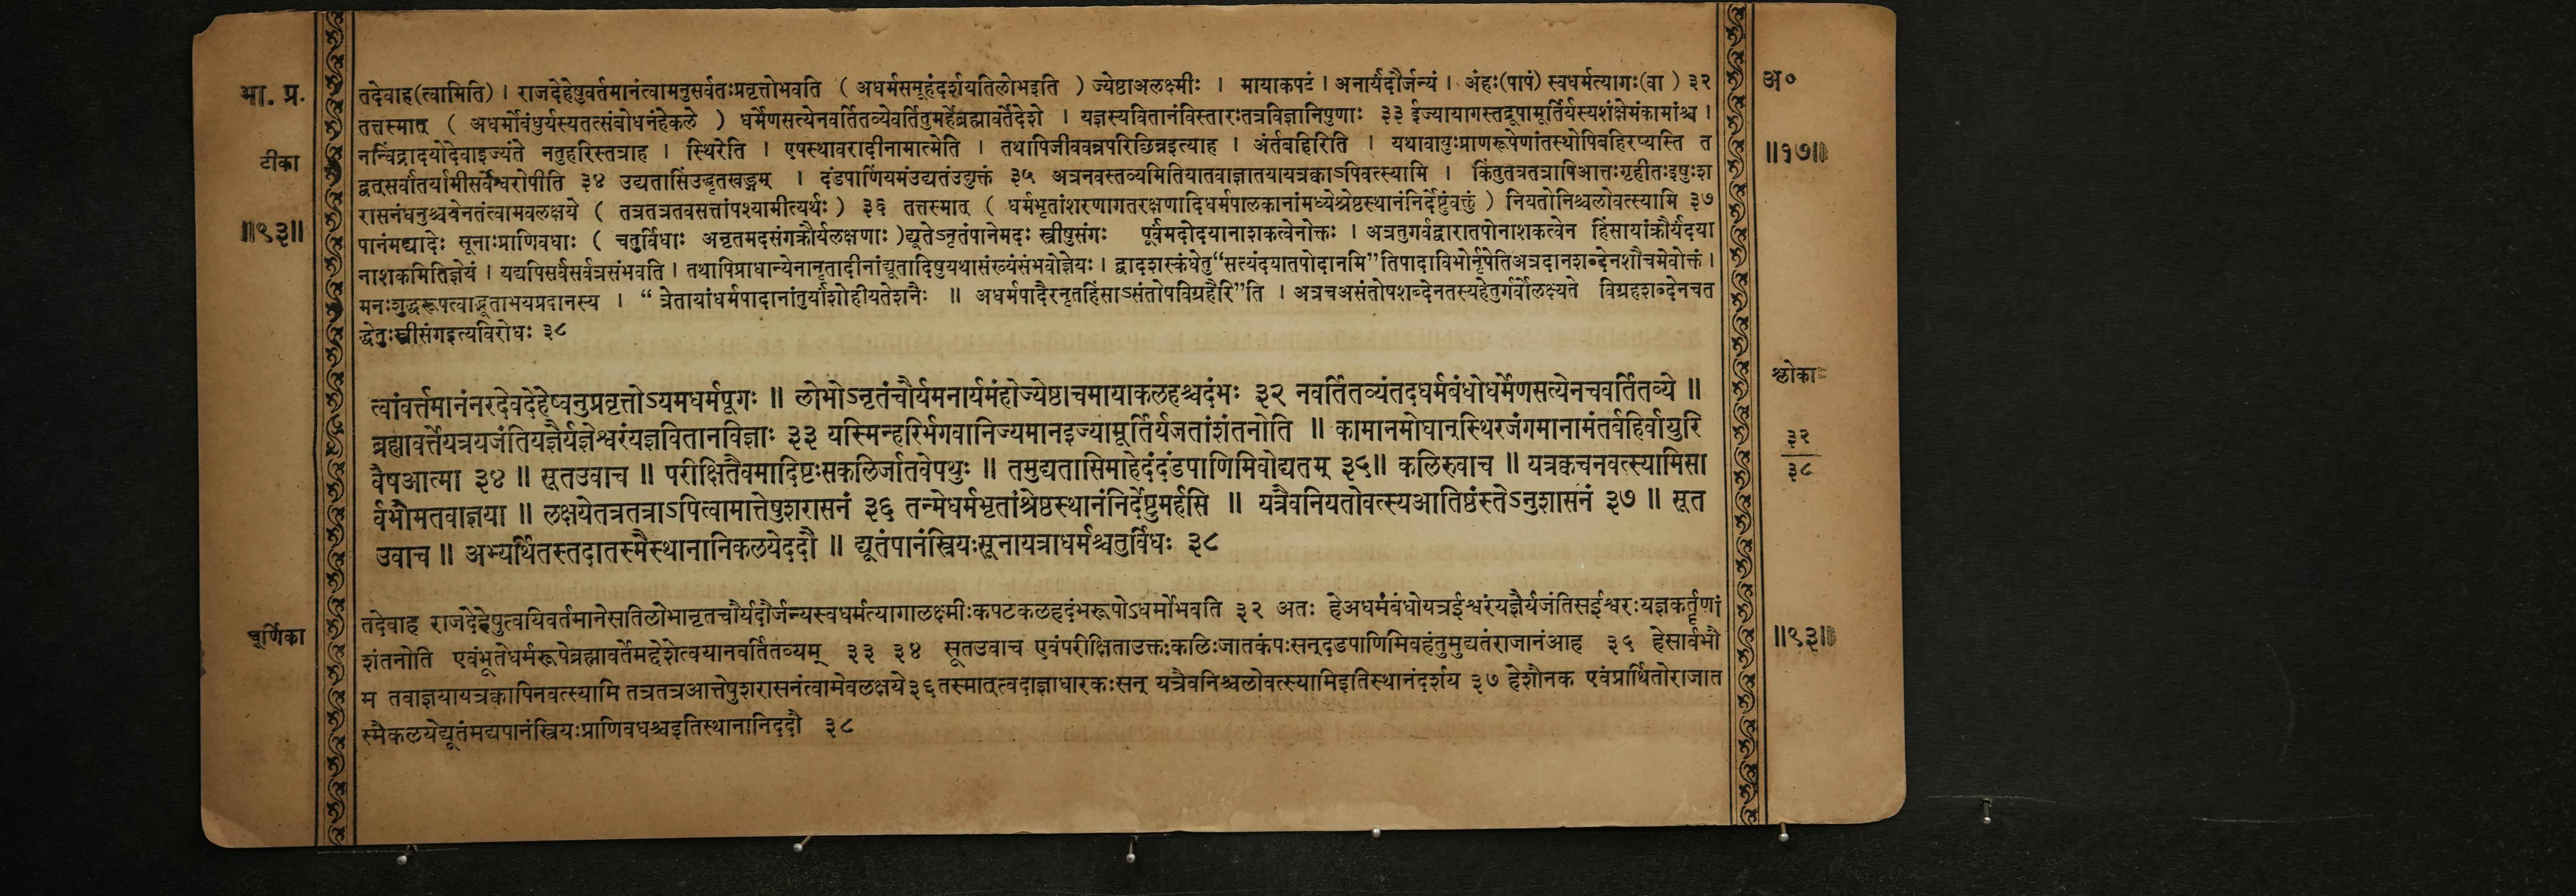 भा. प्र.
टीका
॥९३॥
तदेवाह(त्वामिति) । राजदेहेषुवर्तमानंत्वामनुसर्वतःप्रवृत्तोभवति ( अधर्मसमूहंदर्शयतिलोभइति ) ज्येष्ठाअलक्ष्मीः । मायाकपटं । अनार्यंदौर्जन्यं । अंहः(पापं) स्वधर्मत्यागः(वा ) ३२
तत्तस्मात् ( अधर्मोबंधुर्यस्यतत्संबोधनंहेकले ) धर्मेणसत्येनवर्तितव्येवर्तितुमर्हेब्रह्मावर्तेदेशे । यज्ञस्यवितानंविस्तारःतत्रविज्ञानिपुणाः ३३ ईज्यायागस्तद्रूपामूर्तिर्यस्यशंक्षेमंकामांश्च ।
नन्विंद्रादयोदेवाइज्यंते नतुहरिस्तत्राह । स्थिरेति । एषस्थावरादीनामात्मेति । तथापिजीववन्नपरिछिन्नइत्याह । अंर्तबहिरिति । यथावायुःप्राणरूपेणांतस्थोपिबहिरप्यस्ति त
द्वत्सर्वांतर्यामीसर्वेश्वरोपीति ३४ उद्यतासिंउद्धृतखड्गम् । दंडपाणिंयमंउद्यतंउद्युक्तं ३५ अत्रनवस्तव्यमितियातवाज्ञातयायत्रक्वाऽपिवत्स्यामि । किंतुतत्रतत्रापिआत्तःगृहीतःइषुःश
रासनंधनुश्चयेनतंत्वामवलक्षये ( तत्रतत्रतवसत्तांपश्यामीत्यर्थः ) ३६ तत्तस्मात् ( धर्मभृतांशरणागतरक्षणादिधर्मपालकानांमध्येश्रेष्ठस्थानंनिर्देष्टुंवक्तुं ) नियतोनिश्चलोवत्स्यामि ३७
पानंमद्यादेः सूनाःप्राणिवधाः ( चतुर्विधाः अनृतमदसंगक्रौर्यलक्षणाः )द्यूतेऽनृतंपानेमदः स्त्रीषुसंगः पूर्वंमदोदयानाशकत्वेनोक्तः । अत्रतुगर्वद्वारातपोनाशकत्वेन हिंसायांक्रौर्यंदया
नाशकमितिज्ञेयं । यद्यपिसर्वंसर्वत्रसंभवति । तथापिप्राधान्येनानृतादीनांद्यूतादिषुयथासंख्यंसंभवोज्ञेयः । द्वादशस्कंधेतु“सत्यंदयातपोदानमि”तिपादाविभोर्नृपेतिअत्रदानशब्देनशौचमेवोक्तं ।
मनःशुद्धरूपत्वाद्भूताभयप्रदानस्य । “ त्रेतायांधर्मपादानांतुर्यांशोहीयतेशनैः ॥ अधर्मपादैरनृतहिंसाऽसंतोषविग्रहैरि”ति । अत्रचअसंतोषशब्देनतस्यहेतुर्गर्वोलक्ष्यते विग्रहशब्देनचत
द्धेतुःस्त्रीसंगइत्यविरोधः ३८
त्वांवर्त्तमानंनरदेवदेहेष्वनुप्रवृत्तोऽयमधर्मपूगः ॥ लोभोऽनृतंचौर्यमनार्यमंहोज्येष्ठाचमायाकलहश्चदंभः ३२ नवर्तितव्यंतदधर्मबंधोधर्मेणसत्येनचवर्तितव्ये ॥
ब्रह्मावर्त्तेयत्रयजंतियज्ञैर्यज्ञेश्वरंयज्ञवितानविज्ञाः ३३ यस्मिन्हरिर्भगवानिज्यमानइज्यामूर्तिर्यजतांशंतनोति ॥ कामानमोघान्स्थिरजंगमानामंतर्बहिर्वायुरि
वैषआत्मा ३४ ॥ सूतउवाच ॥ परीक्षितैवमादिष्टःसकलिर्जातवेपथुः ॥ तमुद्यतासिमाहेदंदंडपाणिमिवोद्यतम् ३५॥ कलिरुवाच ॥ यत्रक्वचनवत्स्यामिसा
र्वभौमतवाज्ञया ॥ लक्षयेतत्रतत्राऽपित्वामात्तेषुशरासनं ३६ तन्मेधर्मभृतांश्रेष्ठस्थानंनिर्देष्टुमर्हसि ॥ यत्रैवनियतोवत्स्यआतिष्ठंस्तेऽनुशासनं ३७ ॥ सूत
उवाच ॥ अभ्यर्थितस्तदातस्मैस्थानानिकलयेददौ ॥ द्यूतंपानंस्त्रियःसूनायत्राधर्मश्चतुर्विधः ३८
चूर्णिका
तदेवाह राजदेहेषुत्वयिवर्तमानेसतिलोभानृतचौर्यदौर्जन्यस्वधर्मत्यागालक्ष्मीःकपटकलहदंभरूपोऽधर्मोभवति ३२ अतः हेअधर्मबंधोयत्रईश्वरंयज्ञैर्यजंतिसईश्वरःयज्ञकर्तॄणां
शंतनोति एवंभूतेधर्मरूपेब्रह्मावर्तेमद्देशेत्वयानवर्तितव्यम् ३३ ३४ सूतउवाच एवंपरीक्षिताउक्तःकलिःजातकंपःसन्दडपाणिमिवहंतुमुद्यतंराजानंआह ३६ हेसार्वभौ
म तवाज्ञयायत्रक्वापिनवत्स्यामि तत्रतत्रआत्तेषुशरासनंत्वामेवलक्षये३६तस्मात्त्वदाज्ञाधारकःसन् यत्रैवनिश्चलोवत्स्यामिइतिस्थानंदर्शय ३७ हेशौनक एवंप्रार्थितोराजात
स्मैकलयेद्यूतंमद्यपानंस्त्रियःप्राणिवधश्चइतिस्थानानिददौ ३८
अ०
॥१७॥
श्लोकाः
३२
३८
॥९३॥